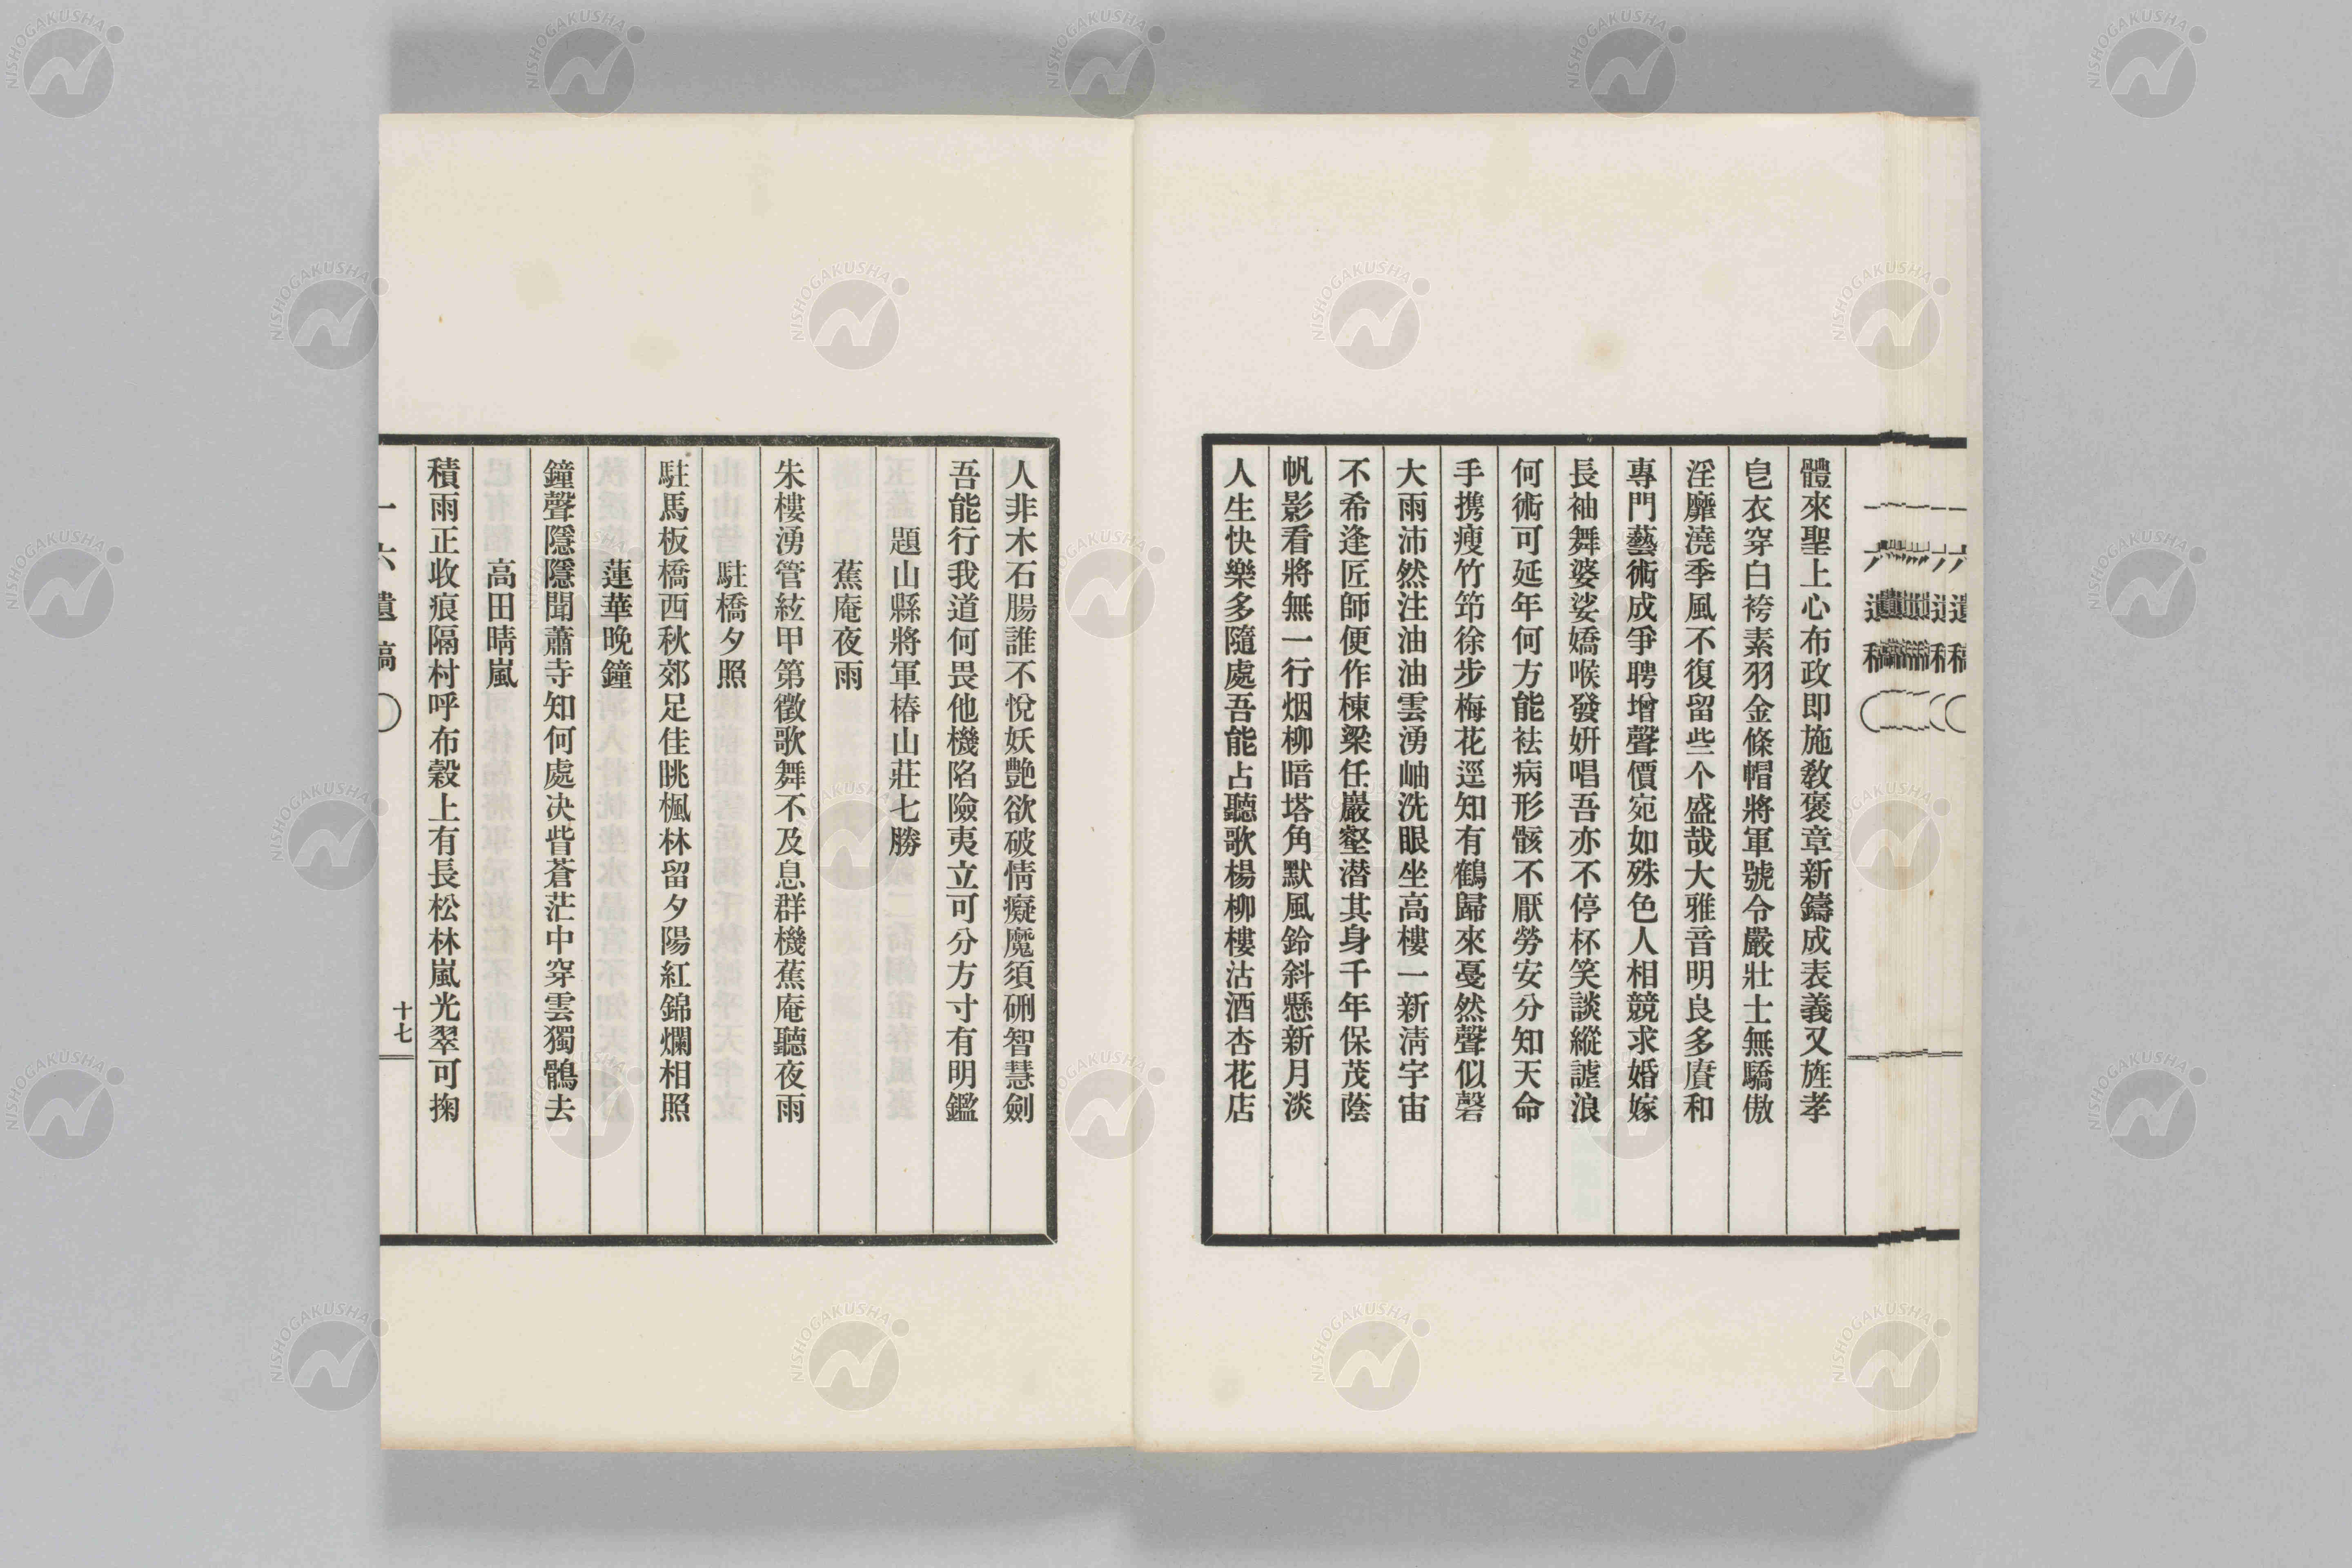 體來聖上心布政即施教褒章新鑄成表義又旌孝
皀衣穿白袴素羽金條帽將軍號令嚴壯士無驕傲
淫靡澆季風不復留些个盛哉大雅音明良多賡和
專門藝術成爭聘增聲價宛如殊色人相競求婚嫁
長袖舞婆娑嬌喉發妍唱吾亦不停杯笑談縱謔浪
何術可延年何方能袪病形骸不厭勞安分知天命
手携瘦竹笻徐步梅花逕知有鶴歸來戞然聲似磬
大雨沛然注油油雲湧岫洗眼坐高樓一新淸宇宙
不希逢匠師便作棟梁任巖壑潜其身千年保茂蔭
帆影看將無一行烟柳暗塔角默風鈴斜懸新月淡
人生快樂多隨處吾能占聽歌楊柳樓沽酒杏花店
人非木石腸誰不悅妖艶欲破情癡魔須硎智慧劍
吾能行我道何畏他機陷險夷立可分方寸有明鑑
題山縣將軍椿山莊七勝
蕉庵夜雨
朱樓湧管絃甲第徵歌舞不及息群機蕉庵聽夜雨
駐橋夕照
駐馬板橋西秋郊足佳眺楓林留夕陽紅錦爛相照
蓮華晩鐘
鐘聲隱隱聞蕭寺知何處决眥蒼茫中穿雲獨鶻去
高田晴嵐
積雨正收痕隔村呼布穀上有長松林嵐光翠可掬
一六遺稿〇
十七